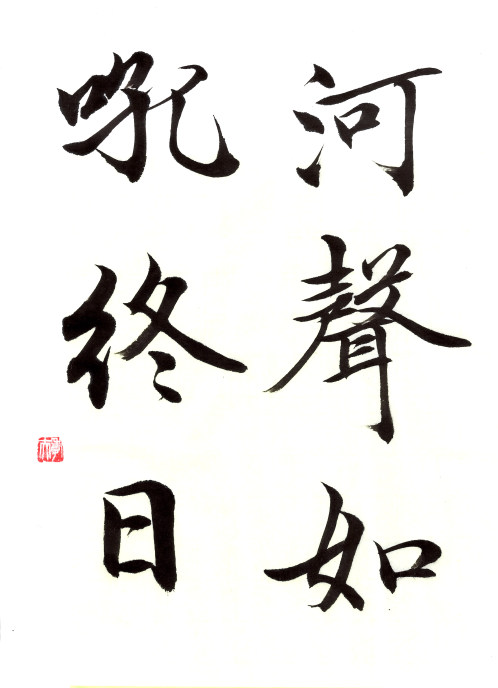 河聲如
吼終日